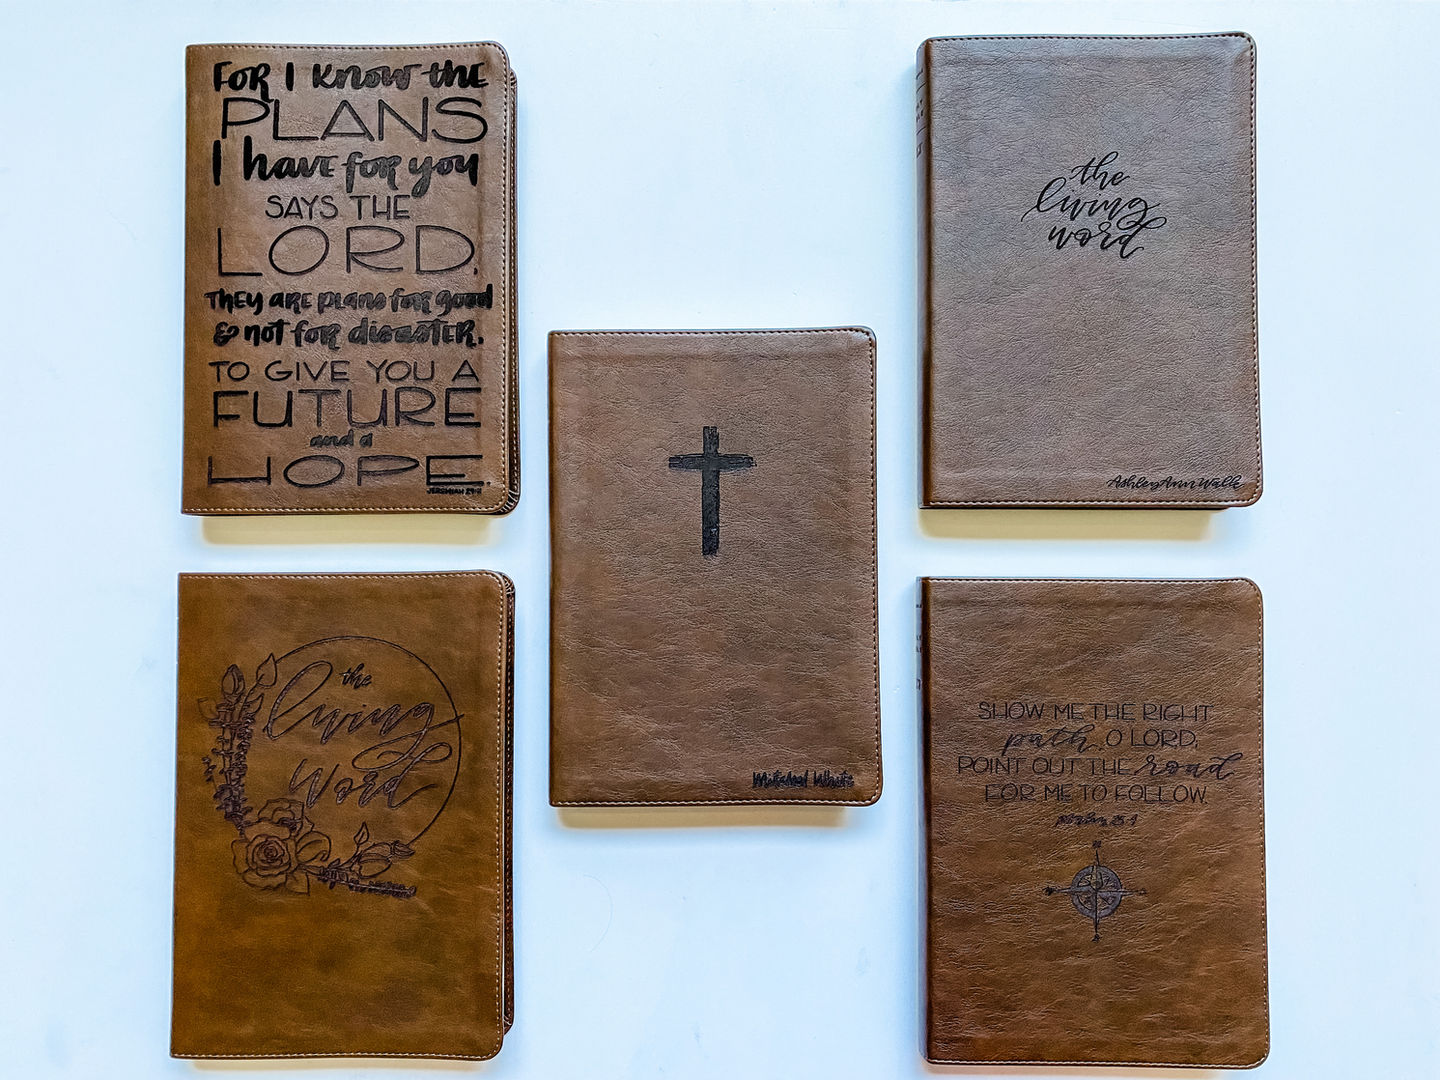 FOR I KNOW THE
PLANS
I have for you
SAYS THE
LORD.
THEY ARE plans for good
& not for disaster,
TO GIVE YOU A
FUTURE
and a
HOPE.
JEREMIAH 29:11
the
living
word
AshleyAnnWalk
the
living
word
SHOW ME THE RIGHT
path, O LORD,
POINT OUT THE road
FOR ME TO FOLLOW.
psalm 25:4